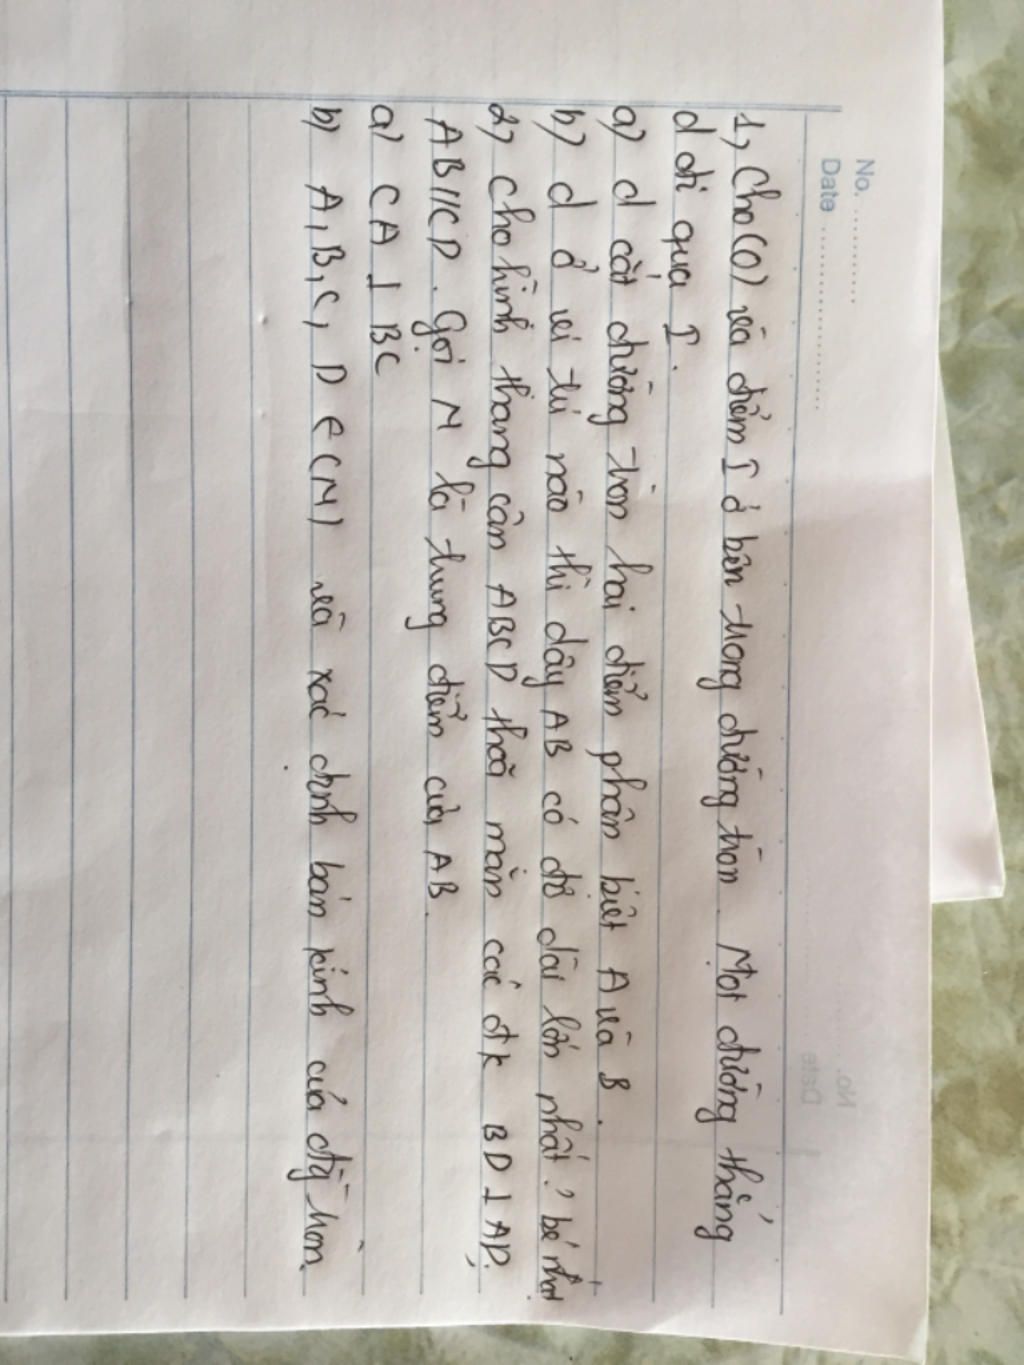 No. ............
Date ........................
1, Cho (O) và điểm I ở bên trong đường tròn. Một đường thẳng
d đi qua I.
a) d cắt đường tròn hai điểm phân biệt A và B.
b) d ở vị trí nào thì dây AB có độ dài lớn nhất? bé nhất
2, Cho hình thang cân ABCD thoã mãn các đk BD ⊥ AD;
AB//CD. Gọi M là trung điểm của AB.
a) CA ⊥ BC
b) A, B, C, D ∈ (M) và xác định bán kính của đg tròn.